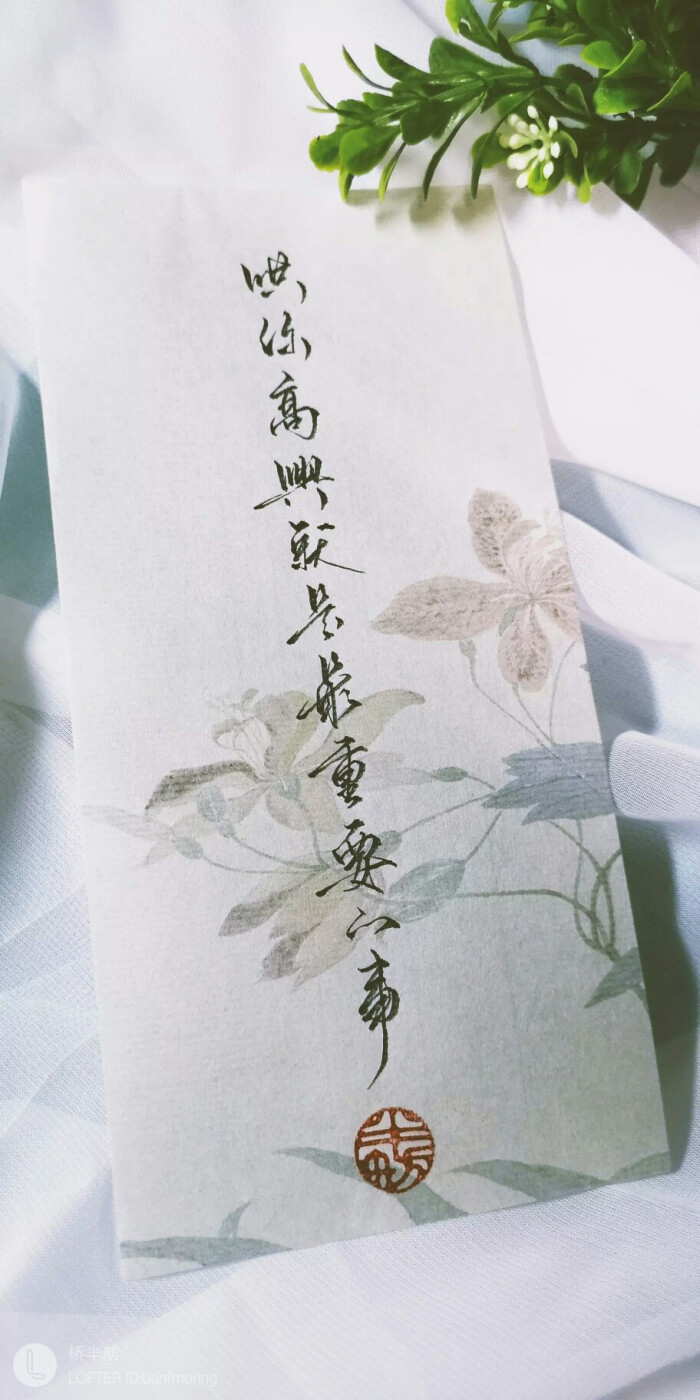 哄你高興就是最重要的事
半舫
桥半舫
LOFTER ID:banfmoring